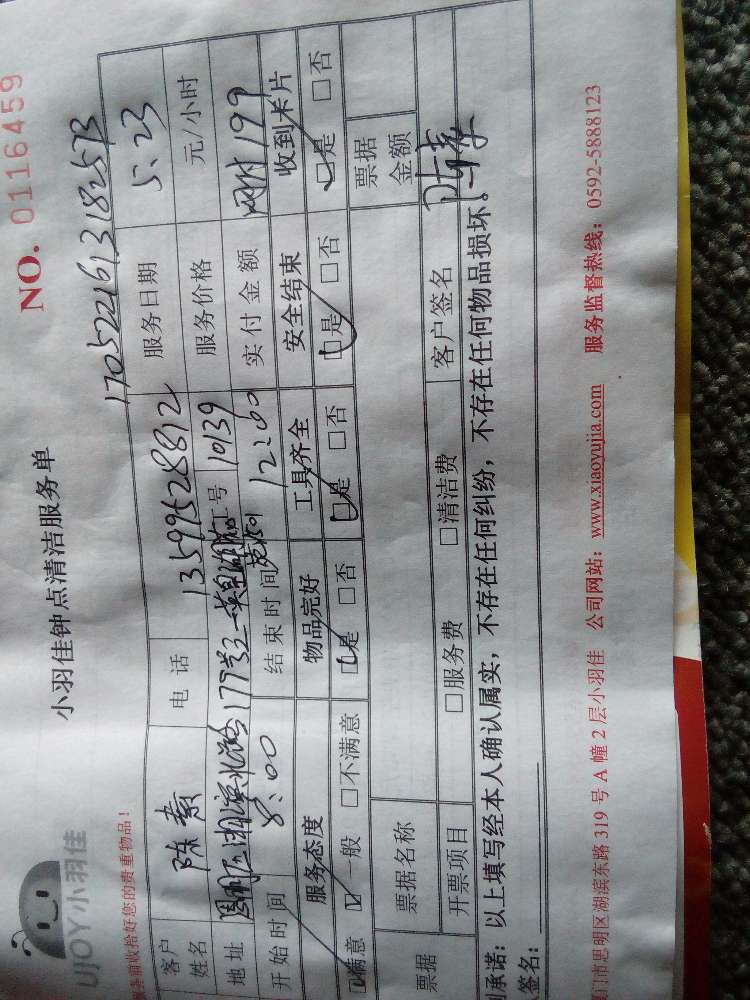 NO. 0116459
小羽佳钟点清洁服务单
UJOY小羽佳
前收拾好您的贵重物品！
17052216131 82573
客户姓名 陈素 电话 13599528812 服务日期 5.23
地址 湖滨北路177号之一 工号 10139 服务价格 元/小时
开始时间 8:00 结束时间 12:00 实付金额 网付199
服务态度 物品完好 工具齐全 安全结束 收到卡片
满意 □一般 □不满意 □是 □否 □是 □否 □是 □否 □是 □否
票据 票据名称 票据金额
开票项目 □服务费 □清洁费 客户签名 陈素
承诺：以上填写经本人确认属实，不存在任何纠纷，不存在任何物品损坏。
签名：
门市思明区湖滨东路 319 号 A 幢 2 层小羽佳 公司网站：www.xiaoyujia.com 服务监督热线：0592-5888123